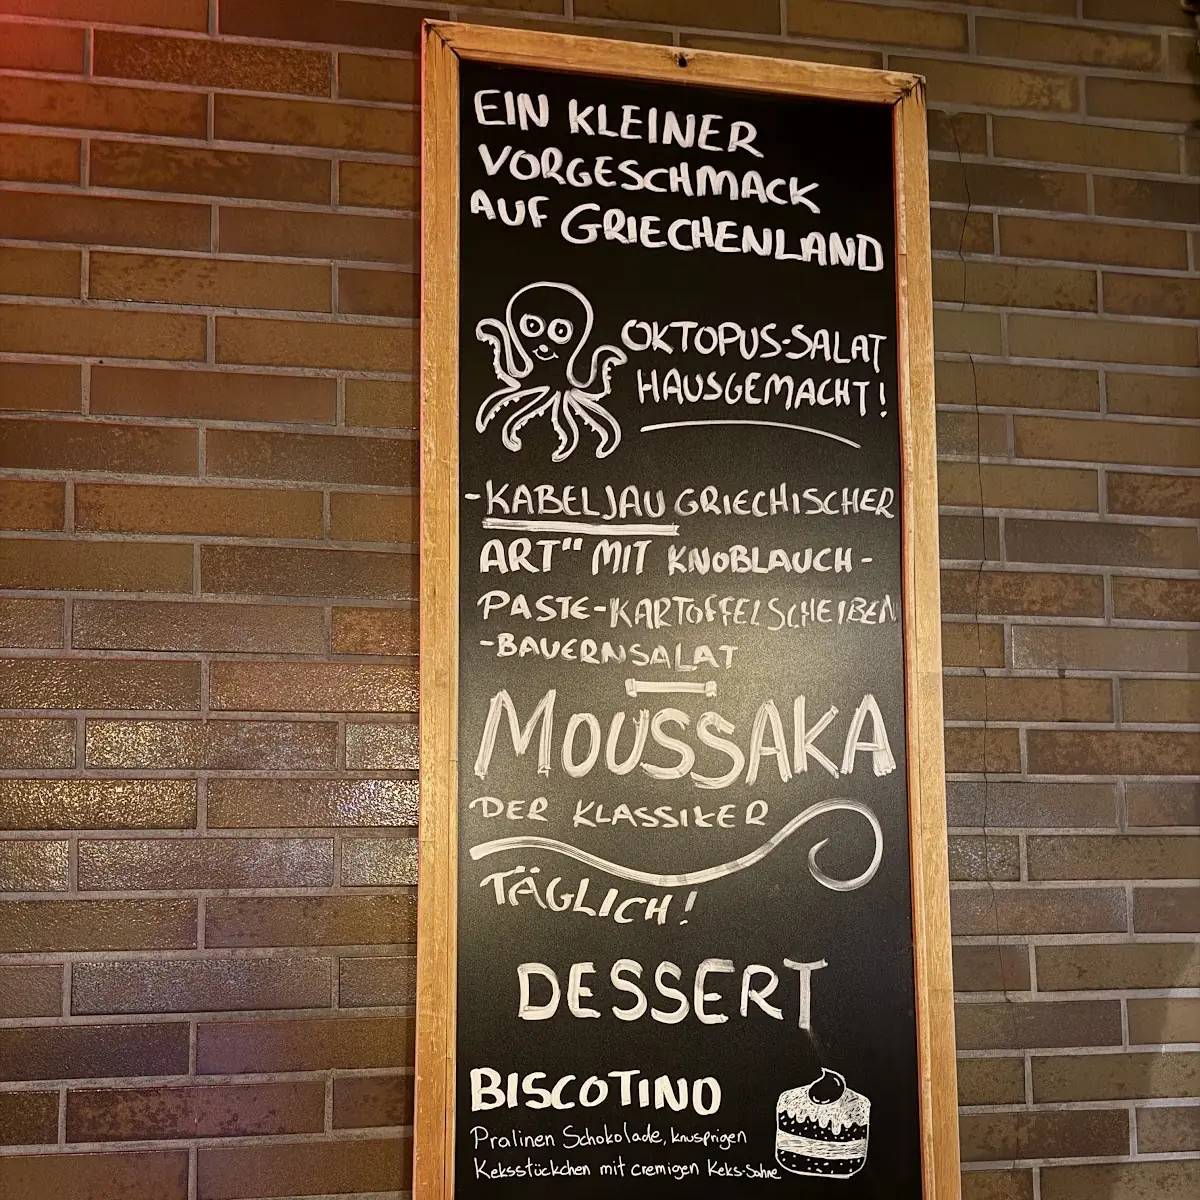 EIN KLEINER
VORGESCHMACK
AUF GRIECHENLAND
OKTOPUS-SALAT
HAUSGEMACHT!
-KABELJAU GRIECHISCHER
ART" MIT KNOBLAUCH-
PASTE-KARTOFFELSCHEIBEN
-BAUERNSALAT
MOUSSAKA
DER KLASSIKER
TÄGLICH!
DESSERT
BISCOTINO
Pralinen Schokolade, knusprigen
Keksstückchen mit cremigen Keks-Sahne